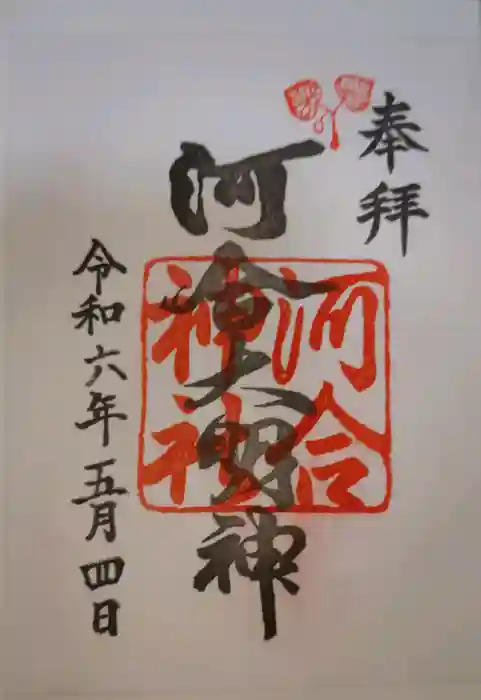 奉拝
河合大明神
河合
神
令和六年五月四日